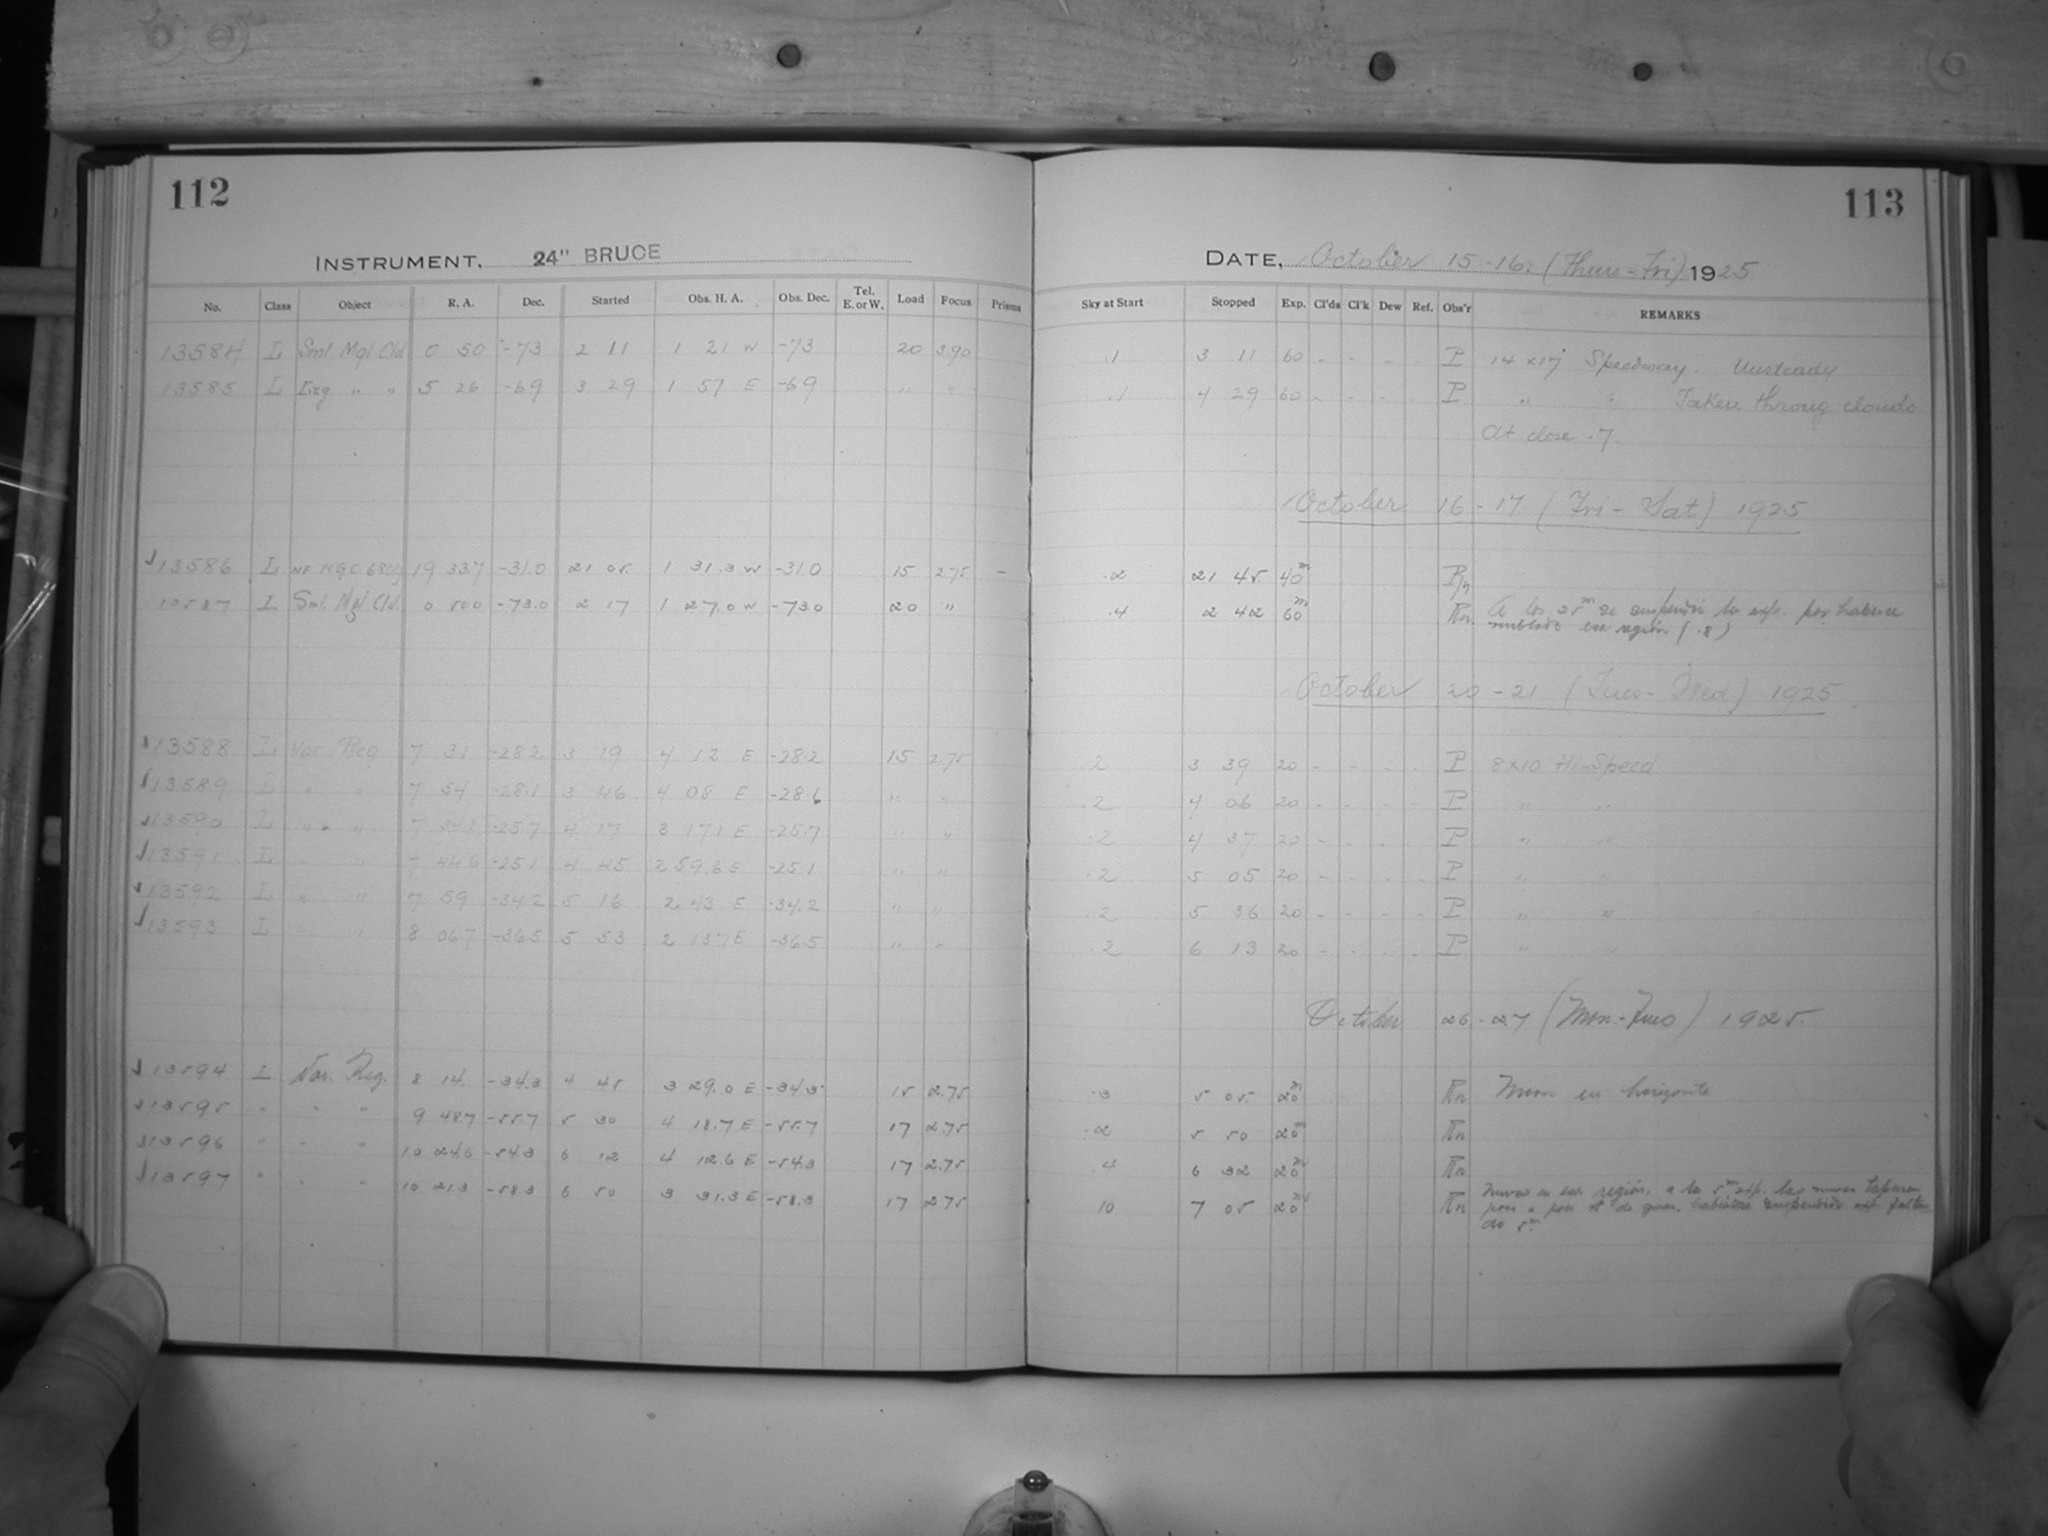 112
113
INSTRUMENT, 24" BRUCE
DATE, October 15-16. (Thurs-Fri) 1925
No. Class Object R. A. Dec. Started Obs. H. A. Obs. Dec. Tel. E. or W. Load Focus Prisms Sky at Start Stopped Exp. Cl'ds Cl'k Dew Ref. Obs'r REMARKS
13584 L Sml Mgl Cld 0 50 -73 2 11 1 21 W -73 20 3.90 .1 3 11 60 - - - - P 14 x 17 Speedway. Unsteady
13585 L Lrg " " 5 26 -69 3 29 1 57 E -69 " " .1 4 29 60 - - - - P " " Taken throug clouds
At close .7
October 16-17 (Fri-Sat) 1925
13586 L NGC 19 33.7 -31.0 21 05 1 31.3 W -31.0 15 2.75 - .2 21 45 40m
13587 L Sml. Mgl Cld. 0 50.0 -73.0 2 17 1 27.0 W -73.0 20 " .4 2 42 60m Rn. A los 25m se suspendió la exp. por haberse
nublado esa región (.8)
October 20-21 (Tues-Wed) 1925
13588 L Var Reg 7 31 -28.2 3 19 4 12 E -28.2 15 2.75 .2 3 39 20 - - - - P 8x10 Hi-Speed
13589 L " " 7 54 -28.1 3 46 4 08 E -28.1 " " .2 4 06 20 - - - - P " "
13590 L " " 7 34.1 -25.7 4 17 3 17.1 E -25.7 " " .2 4 37 20 - - - - P " "
13591 L " " 7 44.6 -25.1 4 45 2 59.6 E -25.1 " " .2 5 05 20 - - - - P " "
13592 L " " 7 59 -34.2 5 16 2 43 E -34.2 " " .2 5 36 20 - - - - P " "
13593 L " " 8 06.7 -36.5 5 53 2 13.7 E -36.5 " " .2 6 13 20 - - - - P " "
October 26-27 (Mon-Tues) 1925.
13594 L Var. Reg. 8 14. -34.3 4 45 3 29.0 E -34.3 15 2.75 .3 5 05. 20m Rn Moon en horizonte
13595 " " " 9 48.7 -55.7 5 30 4 18.7 E -55.7 17 2.75 .2 5 50 20m Rn
13596 " " " 10 24.6 -54.3 6 12 4 12.6 E -54.3 17 2.75 .4 6 32 20m Rn
13597 " " " 10 21.3 -58.3 6 50 3 31.3 E -58.3 17 2.75 10 7 05 20m Rn Nuves en esa región, a los 5m exp. las nuves taparon
poco a poco de guiar, habiéndo suspendido exp. faltan
do 5m